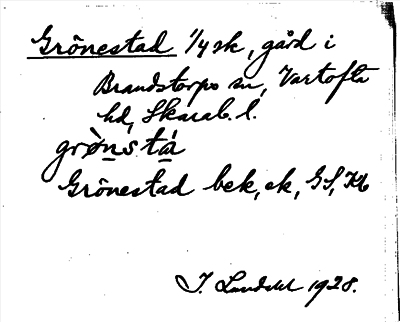 Grönestad 1/4 sk, gård i
Brandstorps sn, Vartofta
hd, Skarab. l.
grö̀nstá
Grönestad bek, ek, GS, Kb
J. Lundahl 1928.